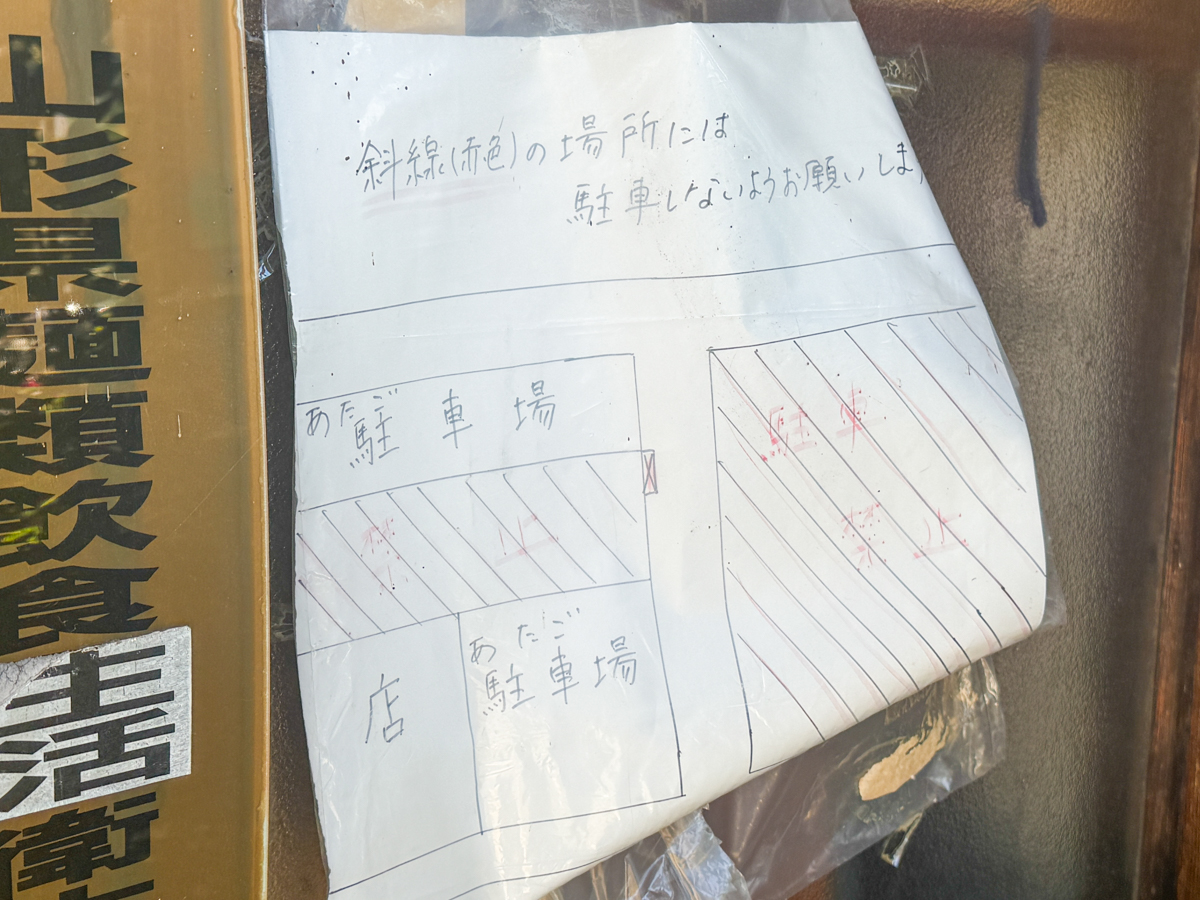 山形県麺類飲食
生活
衛
斜線(赤色)の場所には
駐車しないようお願いしま
あたご
駐車場
禁止
駐車
禁止
あたご
駐車場
店